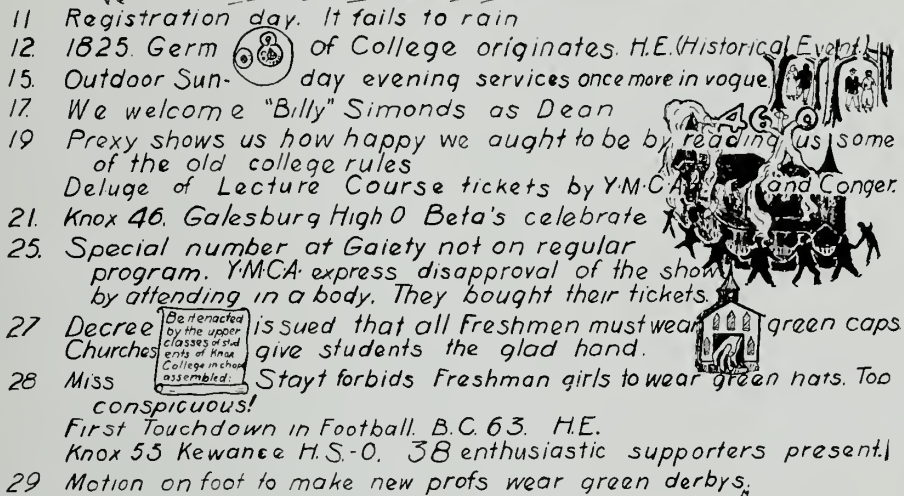 11 Registration day. It fails to rain
12. 1825. Germ of College originates. H.E. (Historical Event.)
15. Outdoor Sun- day evening services once more in vogue
17. We welcome "Billy" Simonds as Dean
19 Prexy shows us how happy we aught to be by reading us some
of the old college rules
Deluge of Lecture Course tickets by Y.M.C.A. and Conger.
21. Knox 46. Galesburg High 0 Beta's celebrate
25. Special number at Gaiety not on regular
program. Y.M.C.A. express disapproval of the show
by attending in a body. They bought their tickets.
27 Decree issued that all Freshmen must wear green caps.
Churches give students the glad hand.
Be it enacted
by the upper
classes of stud
ents of Knox
College in chap
assembled:
28 Miss Stayt forbids Freshman girls to wear green hats. Too
conspicuous!
First Touchdown in Football. B.C. 63. H.E.
Knox 55 Kewanee H.S.-0. 38 enthusiastic supporters present.
29 Motion on foot to make new profs wear green derbys.